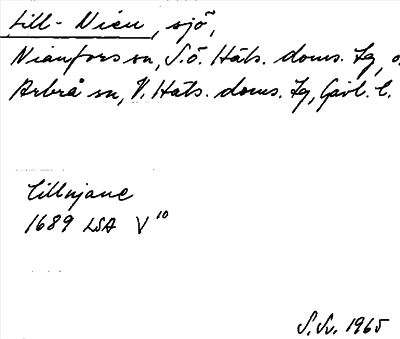 Lill-Nien, sjö,
Nianfors sn, S.ö. Häls. doms. Tg, o.
Arbrå sn, V. Häls. doms. Tg, Gävl. l.
Lillnjane
1689 LSA V 10
S.Sv. 1965